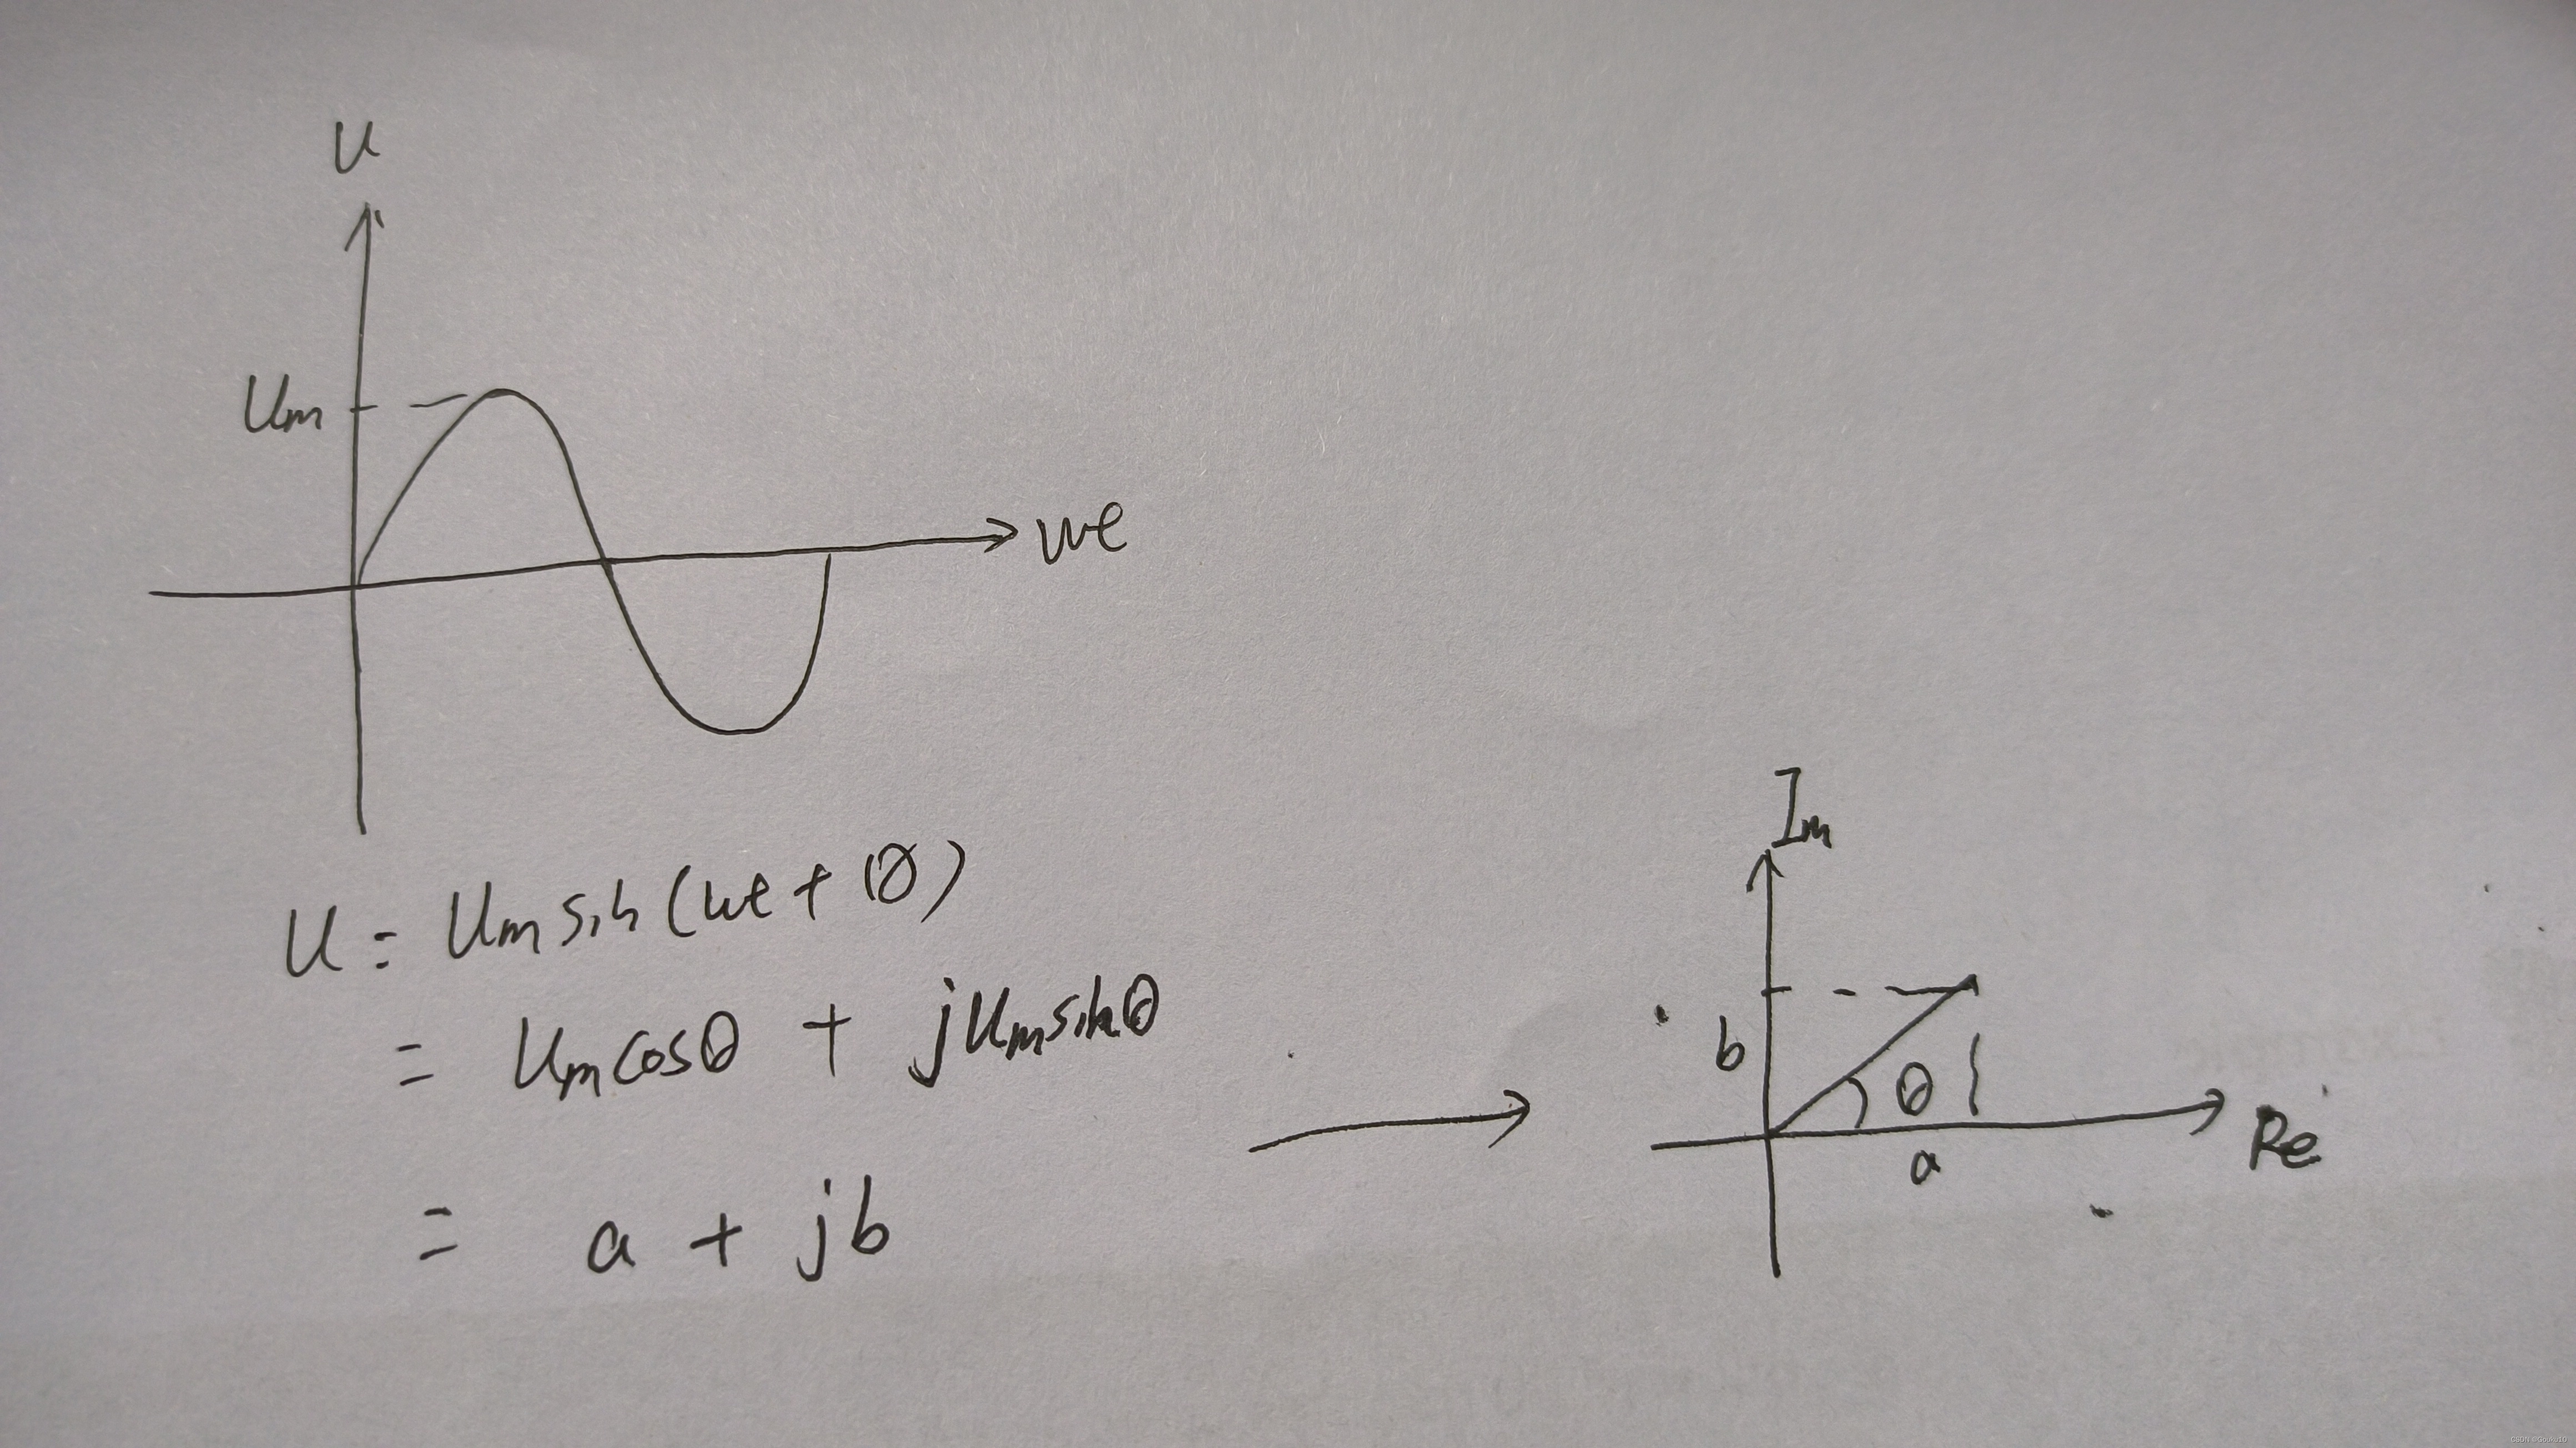 u
Um
wt
u = Um sin (wt + θ)
= Um cosθ + jUm sinθ
= a + jb
Im
b
θ
a
Re
CSDN @Gouke10